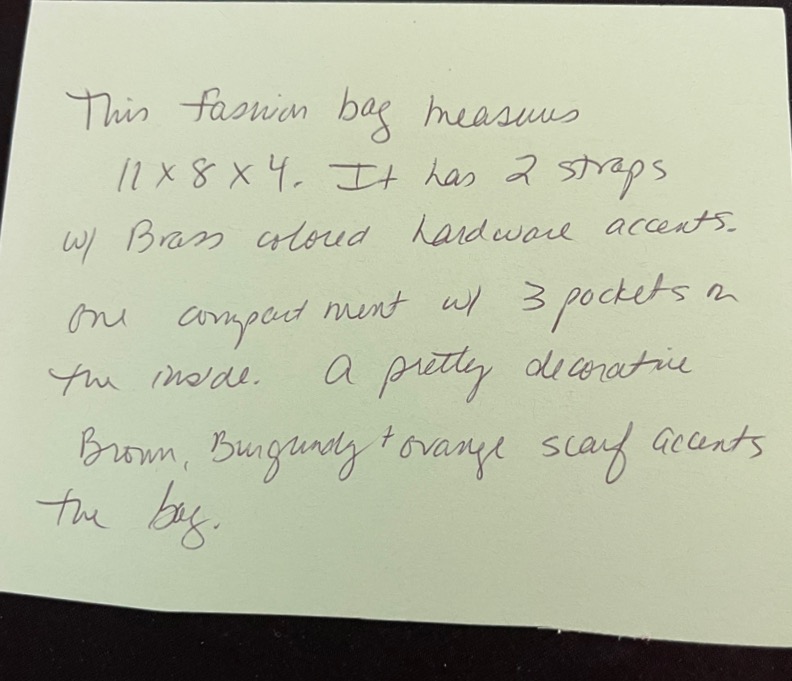 This fashion bag measures
11 x 8 x 4. It has 2 straps
w/ Brass colored hardware accents.
One compartment w/ 3 pockets on
the inside. A pretty decorative
Brown, Burgundy + orange scarf accents
the bag.